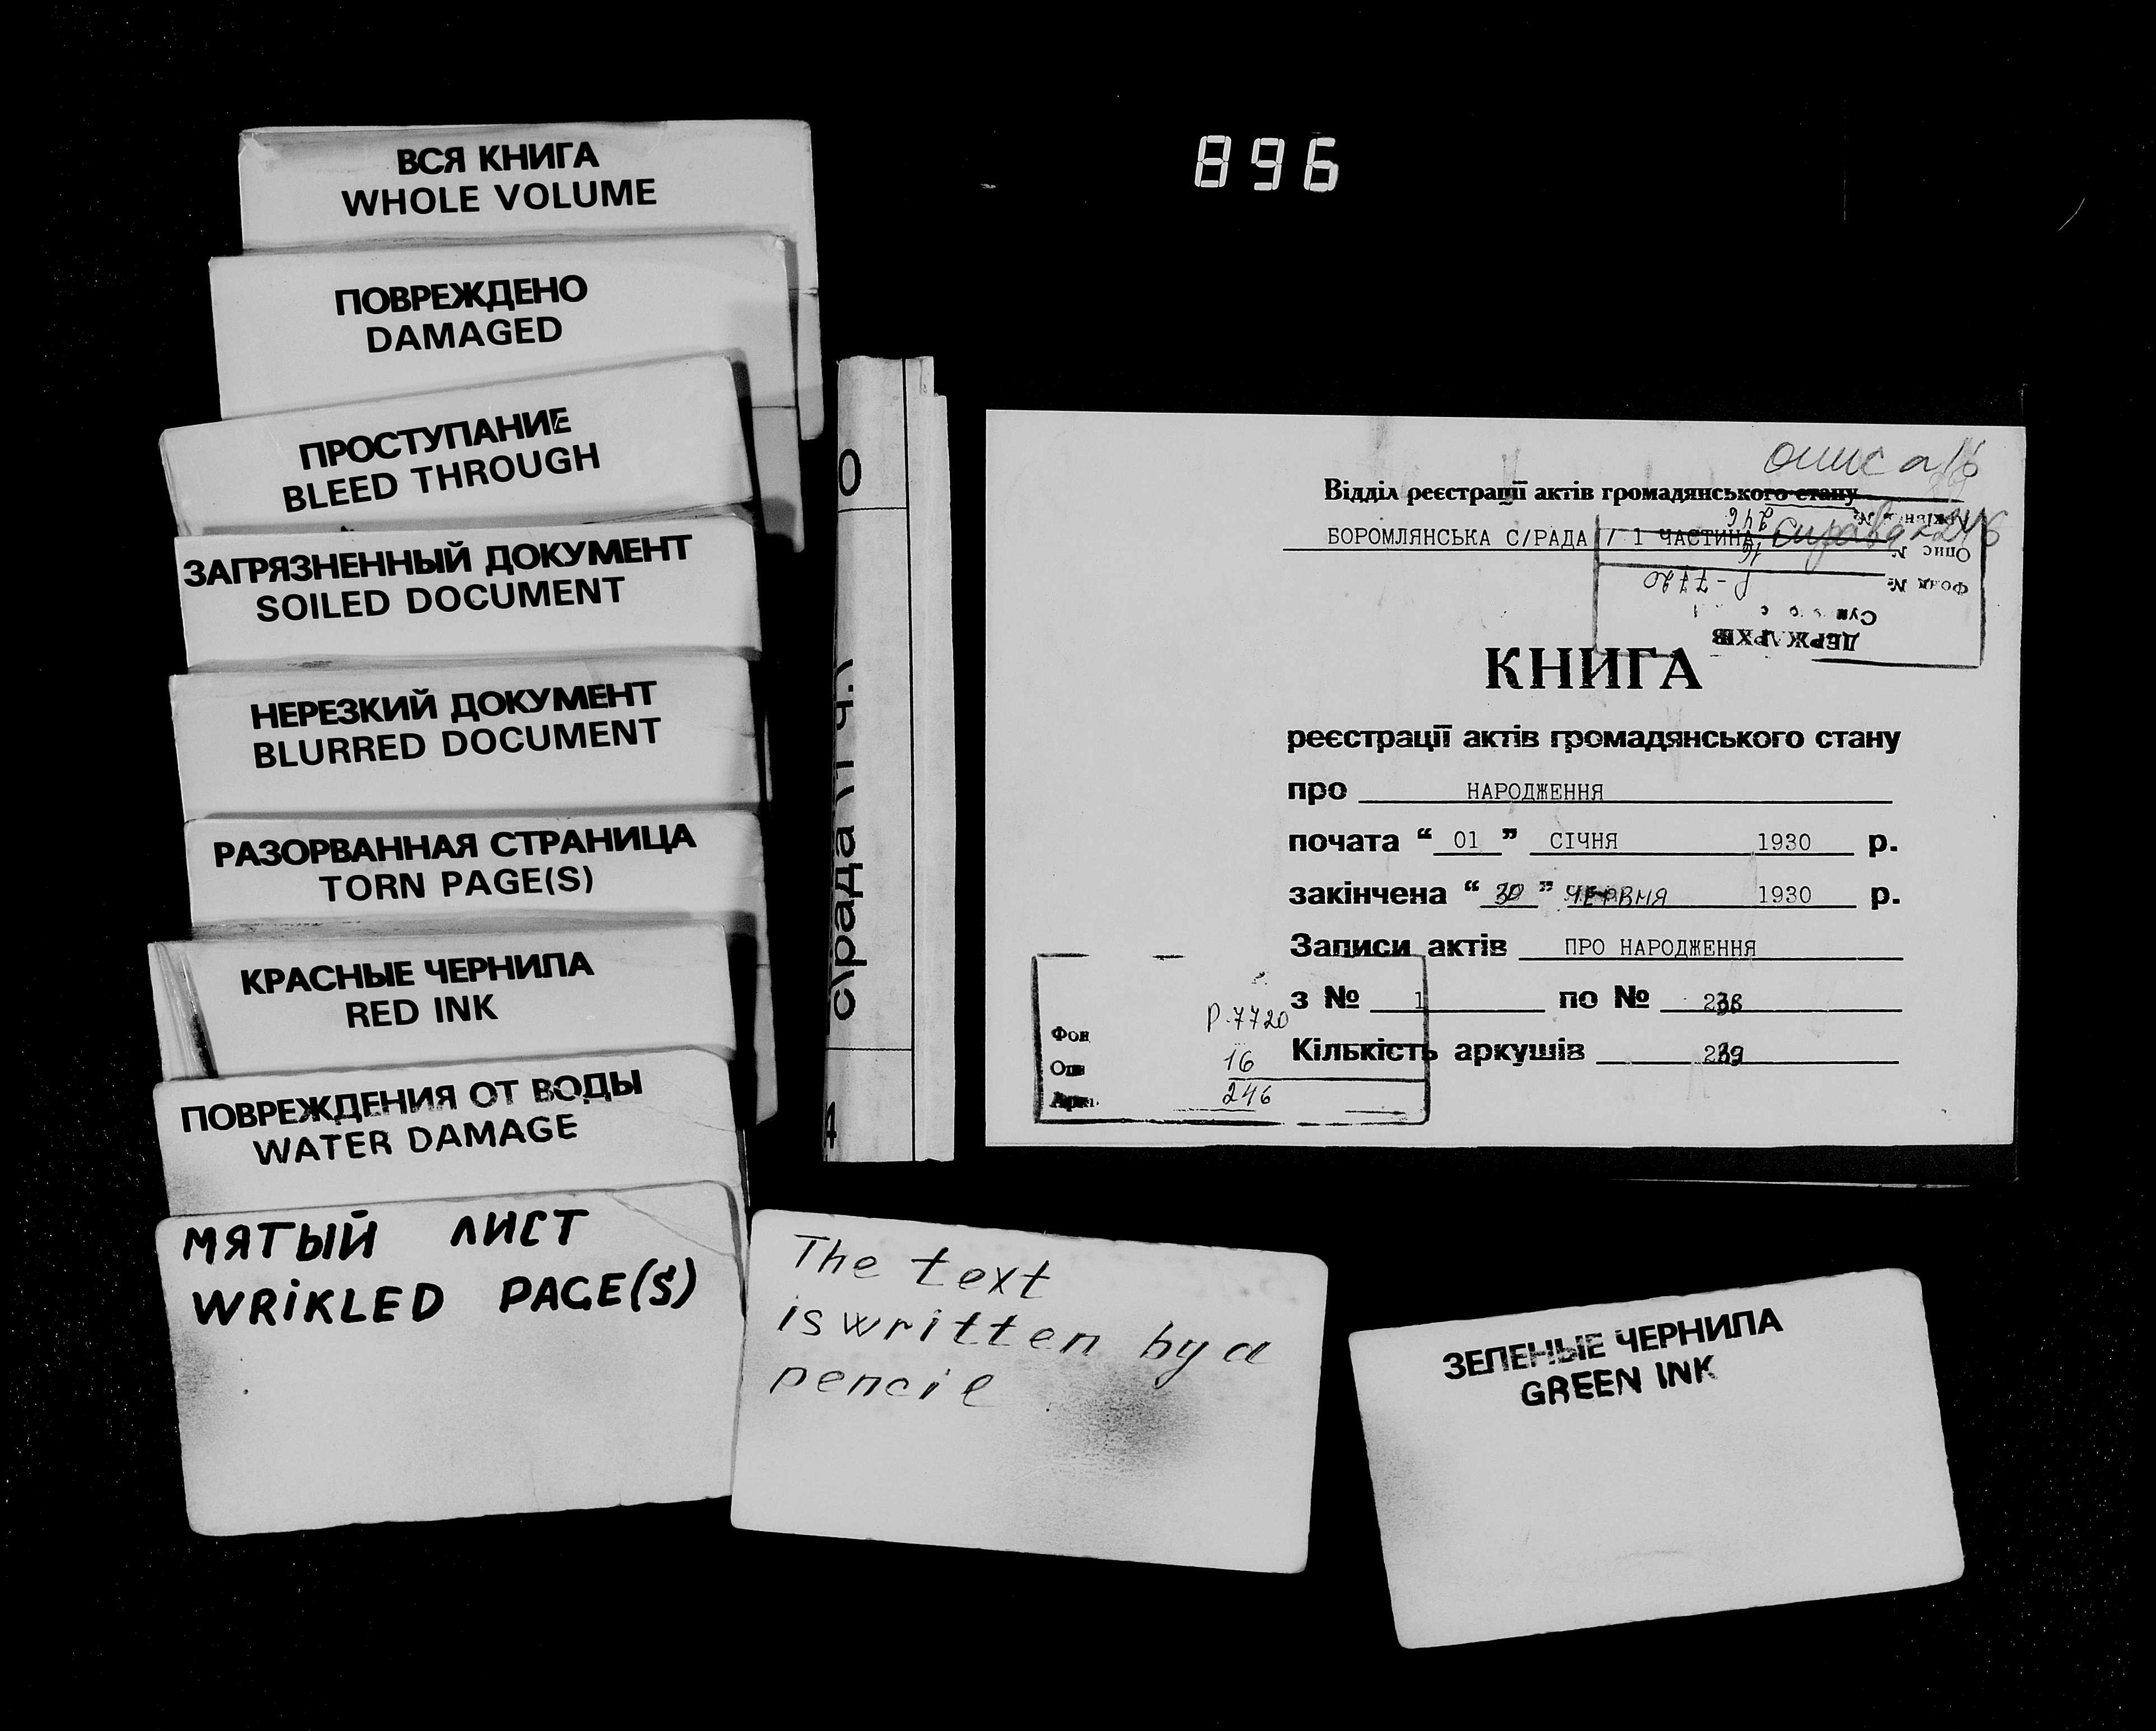 896
ВСЯ КНИГА
WHOLE VOLUME
ПОВРЕЖДЕНО
DAMAGED
ПРОСТУПАНИЕ
BLEED THROUGH
ЗАГРЯЗНЕННЫЙ ДОКУМЕНТ
SOILED DOCUMENT
НЕРЕЗКИЙ ДОКУМЕНТ
BLURRED DOCUMENT
РАЗОРВАННАЯ СТРАНИЦА
TORN PAGE(S)
КРАСНЫЕ ЧЕРНИЛА
RED INK
ПОВРЕЖДЕНИЯ ОТ ВОДЫ
WATER DAMAGE
МЯТЫЙ ЛИСТ
WRIKLED PAGE(S)
с\рада \1 ч.\
опис 16
Відділ реєстрації актів громадянського стану
БОРОМЛЯНСЬКА С/РАДА / 1 ЧАСТИНА справа 246
ДЕРЖАРХІВ
Фонд № Р-7720
Опис № 16
246
КНИГА
реєстрації актів громадянського стану
про НАРОДЖЕННЯ
почата “ 01 ” СІЧНЯ 1930 р.
закінчена “ 30 ” ЧЕРВНЯ 1930 р.
Записи актів ПРО НАРОДЖЕННЯ
з № 1 по №
Кількість аркушів
Фон Р-7720
Оп 16
246
The text
is written by a
pencil
ЗЕЛЕНЫЕ ЧЕРНИЛА
GREEN INK